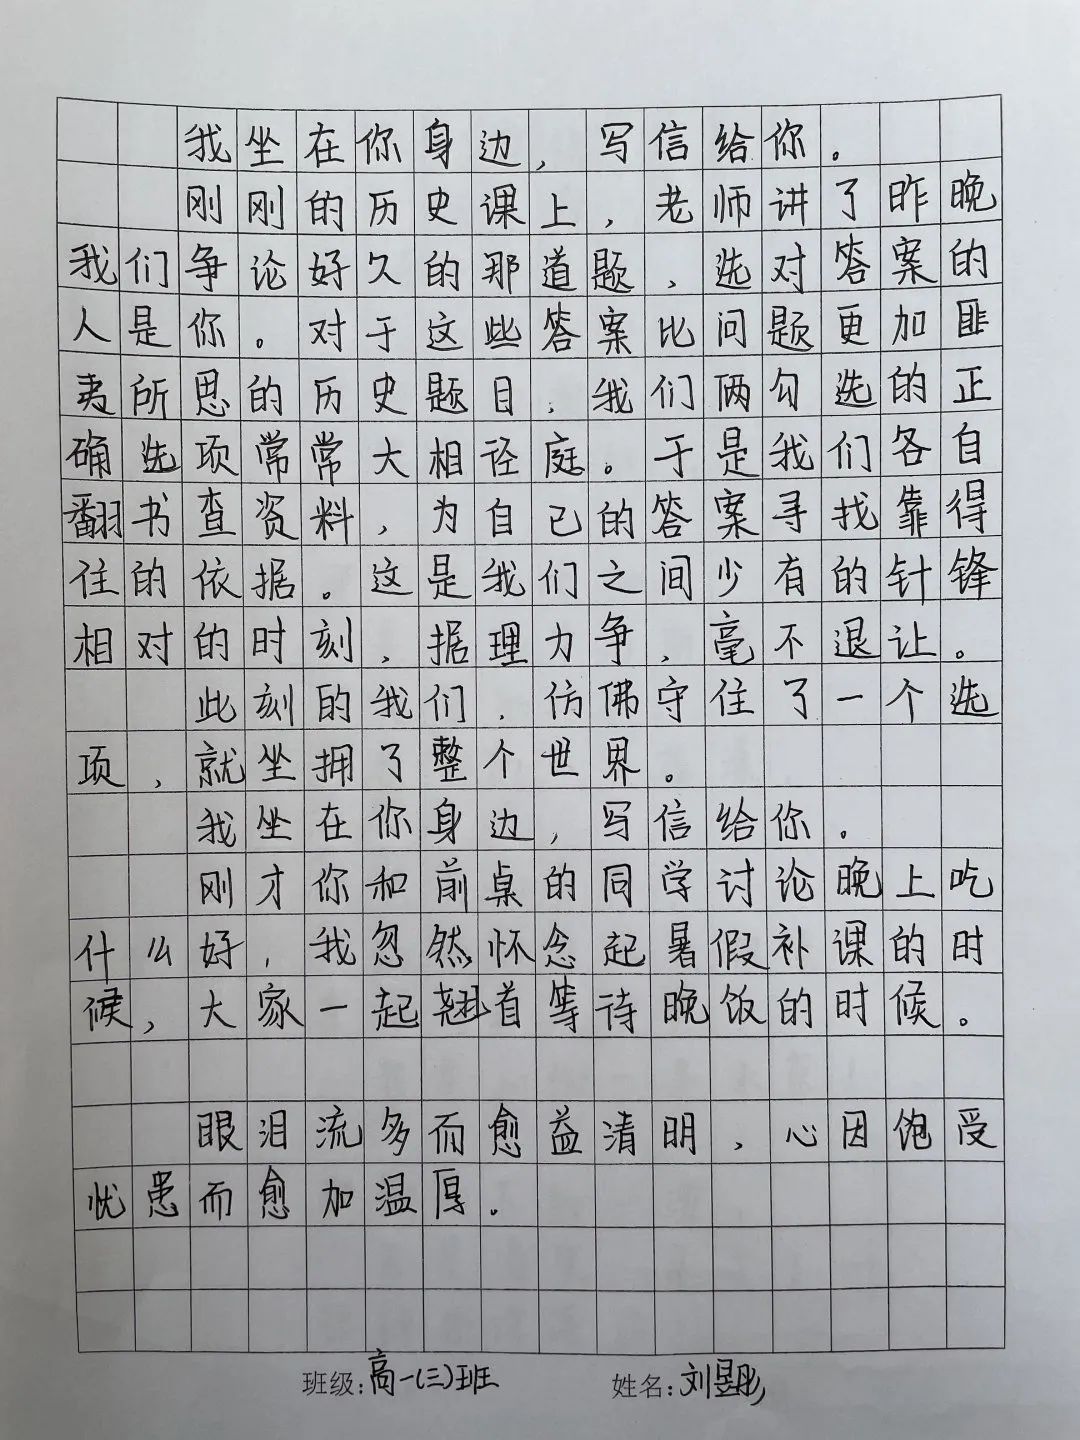 我坐在你身边,写信给你。
刚刚的历史课上,老师讲了昨晚
我们争论好久的那道题,选对答案的
人是你。对于这些答案比问题更加匪
夷所思的历史题目,我们俩勾选的正
确选项常常大相径庭。于是我们各自
翻书查资料,为自己的答案寻找靠得
住的依据。这是我们之间少有的针锋
相对的时刻,据理力争,毫不退让。
此刻的我们,仿佛守住了一个选
项,就坐拥了整个世界。
我坐在你身边,写信给你。
刚才你和前桌的同学讨论晚上吃
什么好,我忽然怀念起暑假补课的时
候,大家一起翘首等待晚饭的时候。
眼泪流多而愈益清明,心因饱受
忧患而愈加温厚。
班级:高一(三)班 姓名:刘昱彤